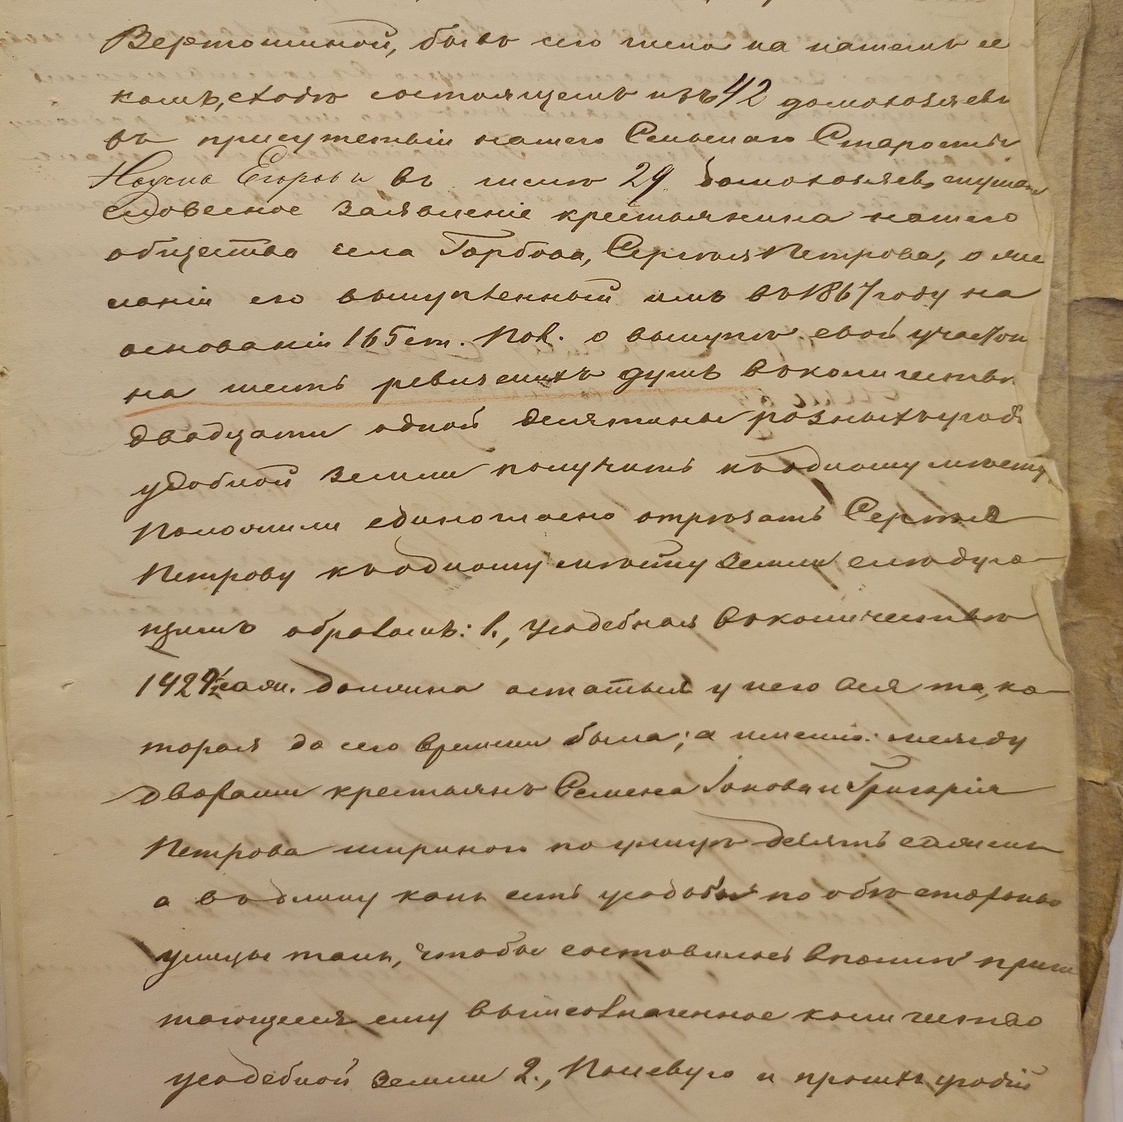 Вертошиной, бывъ сего числа на нашемъ се
комъ, сходѣ состоящемъ изъ 42 домохозяевъ
въ присутствіи нашего Сельскаго Старосты
Наума Егорова въ числѣ 29 домохозяевъ, слушали
словесное заявленіе крестьянина нашего
общества села Горбова, Сергѣя Петрова, о же
ланіи его выкупленный имъ въ 1867 году на
основаніи 165 ст. Пол. о выкупѣ свой участок
на шесть ревизскихъ душъ въ количествѣ
двадцати одной десятины разныхъ угод
удобной земли получить къ одному мѣсту,
Положили единогласно отрѣзать Сергѣю
Петрову къ одному мѣсту земли слѣдую-
щимъ образомъ: 1., Усадебная въ количествѣ
1429½ саж. должна остаться у него вся та, ко-
торая до сего времени была; а именно: между
дворами крестьянъ Семена Іонова и Григорія
Петрова шириною по улицѣ девять сажень
а въ длину какъ есть усадьбы по обѣ стороны
улицы такъ, чтобы составилось вполнѣ причи
тающееся ему вышеозначенное количество
усадебной земли 2., Полевую и прочихъ угодій